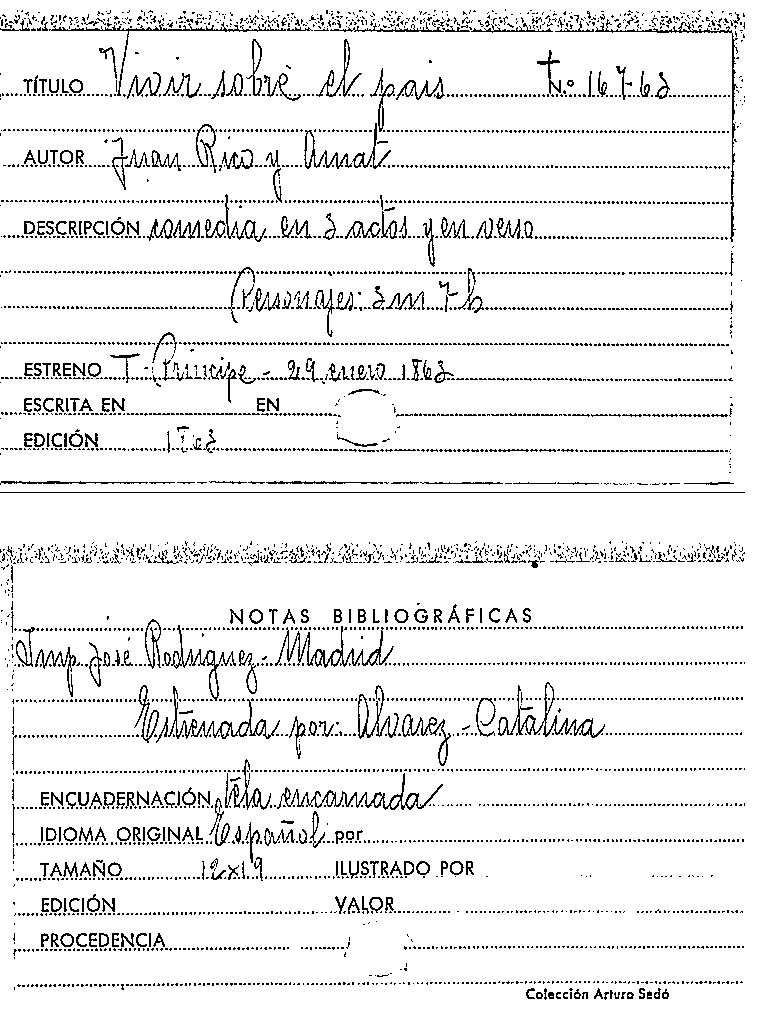 TÍTULO Vivir sobre el pais N.º 167-63
AUTOR Juan Rico y Amat
DESCRIPCIÓN comedia en 3 actos y en verso
Personajes: 3 m 7 h
ESTRENO T. Principe - 29 enero 1863
ESCRITA EN EN
EDICIÓN 1863
NOTAS BIBLIOGRÁFICAS
Imp. José Rodriguez - Madrid
Estrenada por: Alvarez - Catalina
ENCUADERNACIÓN tela encarnada
IDIOMA ORIGINAL Español por
TAMAÑO 12x19 ILUSTRADO POR
EDICIÓN VALOR
PROCEDENCIA
Colección Arturo Sedó